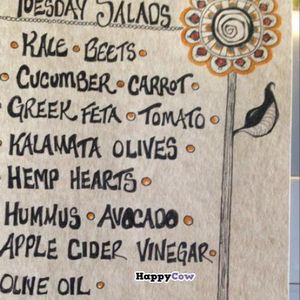 TUESDAY SALADS
• KALE • BEETS •
• CUCUMBER • CARROT •
• GREEK FETA • TOMATO •
• KALAMATA OLIVES •
• HEMP HEARTS •
HUMMUS • AVOCADO •
APPLE CIDER VINEGAR •
OLIVE OIL •
HappyCow